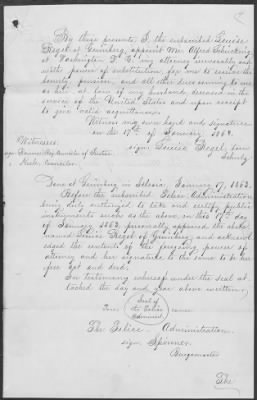 By these presents I, the undersigned Louise
Flegel of Grünberg, appoint Mr. Alfred Schücking
at Washington D. C. my attorney
with power of substitution, for me to receive the
bounty, pension, and all other dues coming to me
as heir at law of my husband, deceased in the
service of the United States and upon receipt
to give valid acquittances.
Witness my own hand and signature
on the 17th of January 1863.
Witnesses
sign. Louise Flegel, born
Schulz
Done at Grünberg in Silesia January 17, 1863.
Before the undersigned Police Administration
being duly authorized to take and certify public
instruments such as the above, on this 17th day
of January 1863, personally appeared the above
named Louise Flegel of Grünberg, and acknow
edged the contents of the foregoing power of
attorney and her signature to the same to be her
free act and deed.
In testimony whereof under the seal at
tached the day and year above written.
Seal of
the Police
Administ.
The Police Administration.
sign.
Burgomaster
The